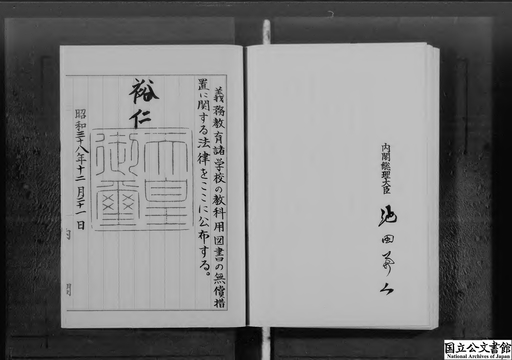 義務教育諸学校の教科用図書の無償措
置に関する法律をここに公布する。
裕仁
天皇
御璽
昭和三十八年十二月二十一日
内閣総理大臣
池田勇人
国立公文書館
National Archives of Japan